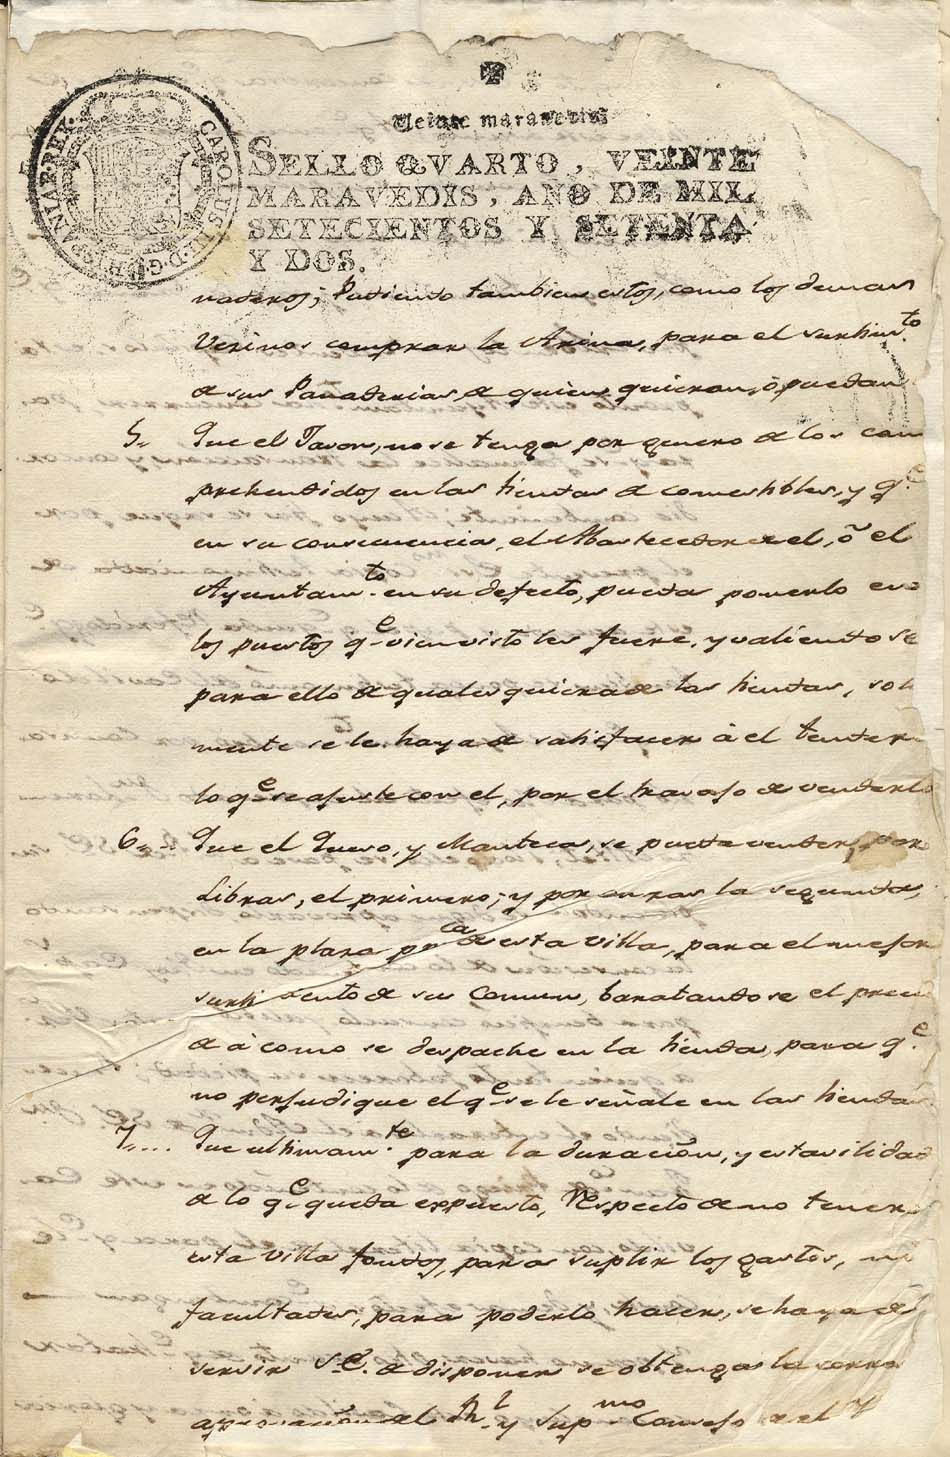 Veinte maravedis
SELLO QVARTO, VEINTE
MARAVEDIS, AÑO DE MIL
SETECIENTOS Y SETENTA
Y DOS.
CAROLUS III. D. G. HISPANIAR. REX.
naderos; Pudiendo tambien estos, como los demas
Vezinos comprar la Arina, para el surtimto.
de sus Panaderias de quien quieran, ò puedan
5.. Que el Javon, no se tenga por genero de los com
prehendidos en las tiendas de comestibles, y qe.
en su consecuencia, el Abastecedor de el, ô el
Ayuntamto. en su defecto, pueda ponerlo en
los puestos qe. vien visto les fuere, y valiendose
para ello de qualesquiera de las tiendas, sola
mente se le haya de satisfacer à el tendero
lo qe. se ajuste con el, por el travajo de venderlo
6.... Que el Queso, y Manteca, se pueda vender, por
Libras, el primero; y por onzas la segunda,
en la plaza pca. de esta villa, para el mejor
surtimiento de su Comun, baratandose el precio
de à como se despache en la tienda, para qe.
no perjudique el qe. se le señale en las tiendas.
7.... Que ultimamte. para la duración, y estavilidad
de lo qe. queda expuesto, Respecto de no tener
esta villa fondos, para suplir los gastos, ni
facultades, para poderlo hacer, se haya de
servir V.E. de disponer se obtenga la corres
aprovación del Rl. y Supmo. Consejo de el